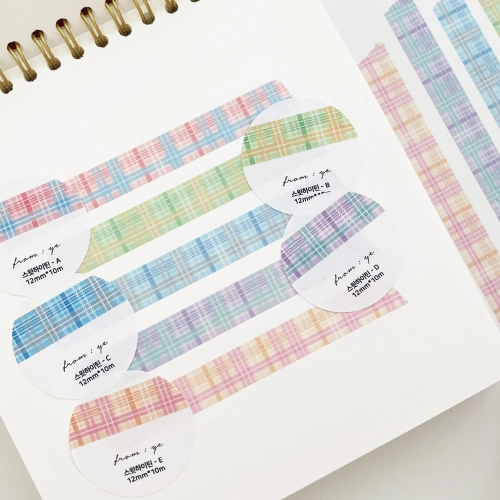 from : ye
스윗하이틴 - A
12mm*10m
from : ye
스윗하이틴 - B
12mm*10m
from : ye
스윗하이틴 - C
12mm*10m
from : ye
스윗하이틴 - D
12mm*10m
from : ye
스윗하이틴 - E
12mm*10m